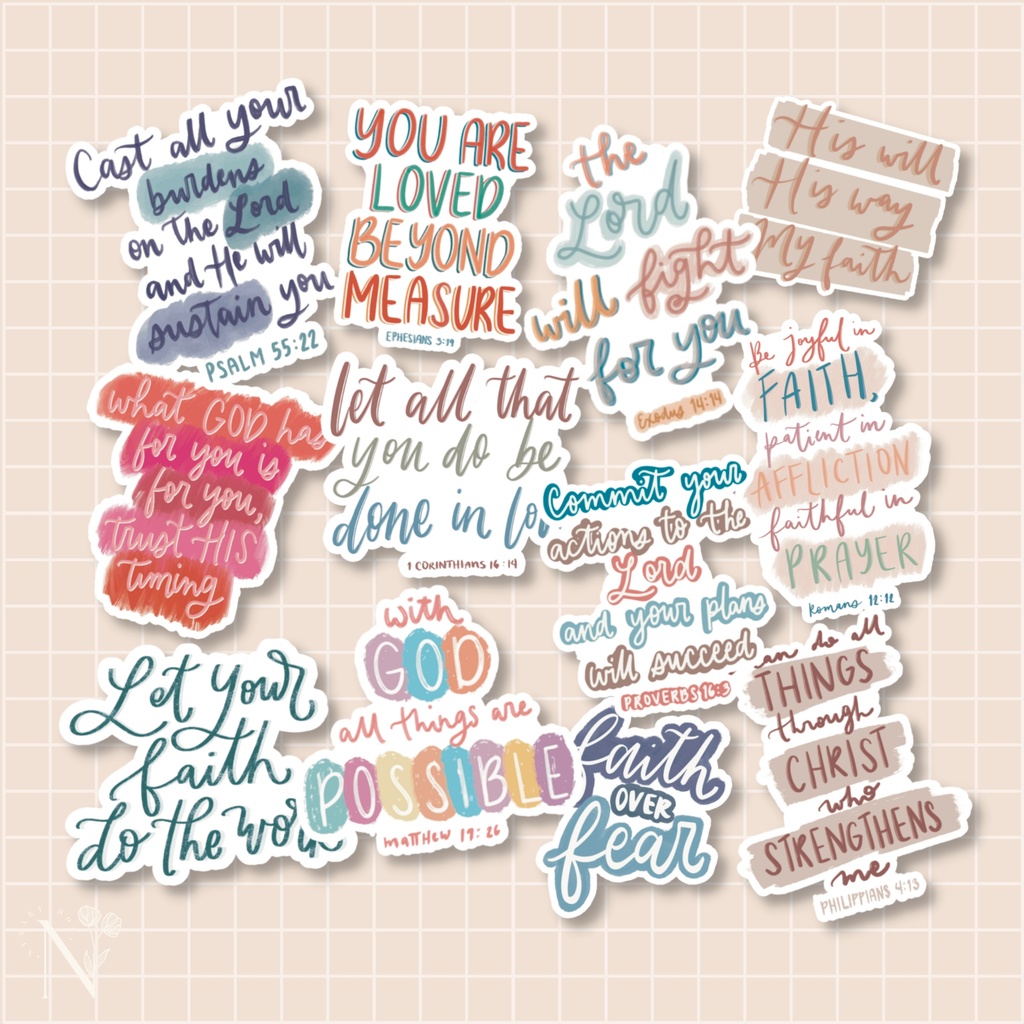 Cast all your
burdens
on the Lord
and He will
sustain you
PSALM 55:22
YOU ARE
LOVED
BEYOND
MEASURE
EPHESIANS 3:19
the
Lord
will fight
for you
Exodus 14:14
His will
His way
My faith
what GOD has
for you is
for you,
trust HIS
timing
let all that
you do be
done in lo
1 CORINTHIANS 16:14
Commit your
actions to the
Lord
and your plans
will succeed
PROVERBS 16:3
Be joyful in
FAITH,
patient in
AFFLICTION
faithful in
PRAYER
Romans 12:12
Let your
faith
do the work
with
GOD
all things are
POSSIBLE
matthew 19:26
faith
OVER
fear
an do all
THINGS
through
CHRIST
who
STRENGTHENS
me
PHILIPPIANS 4:13
N